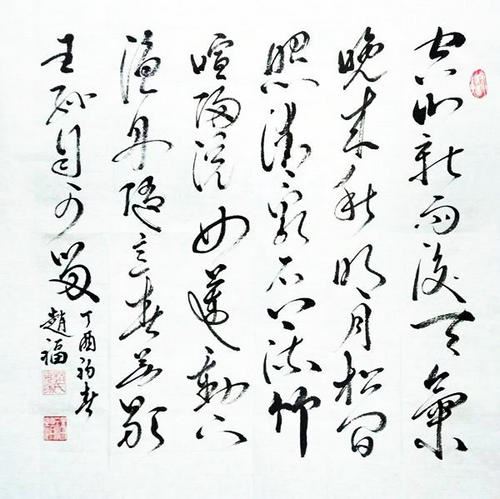 空山新雨後天氣
晚來秋明月松間
照清泉石上流竹
喧歸浣女蓮動下
漁舟隨意春芳歇
王孫自可留
丁酉初春
趙福